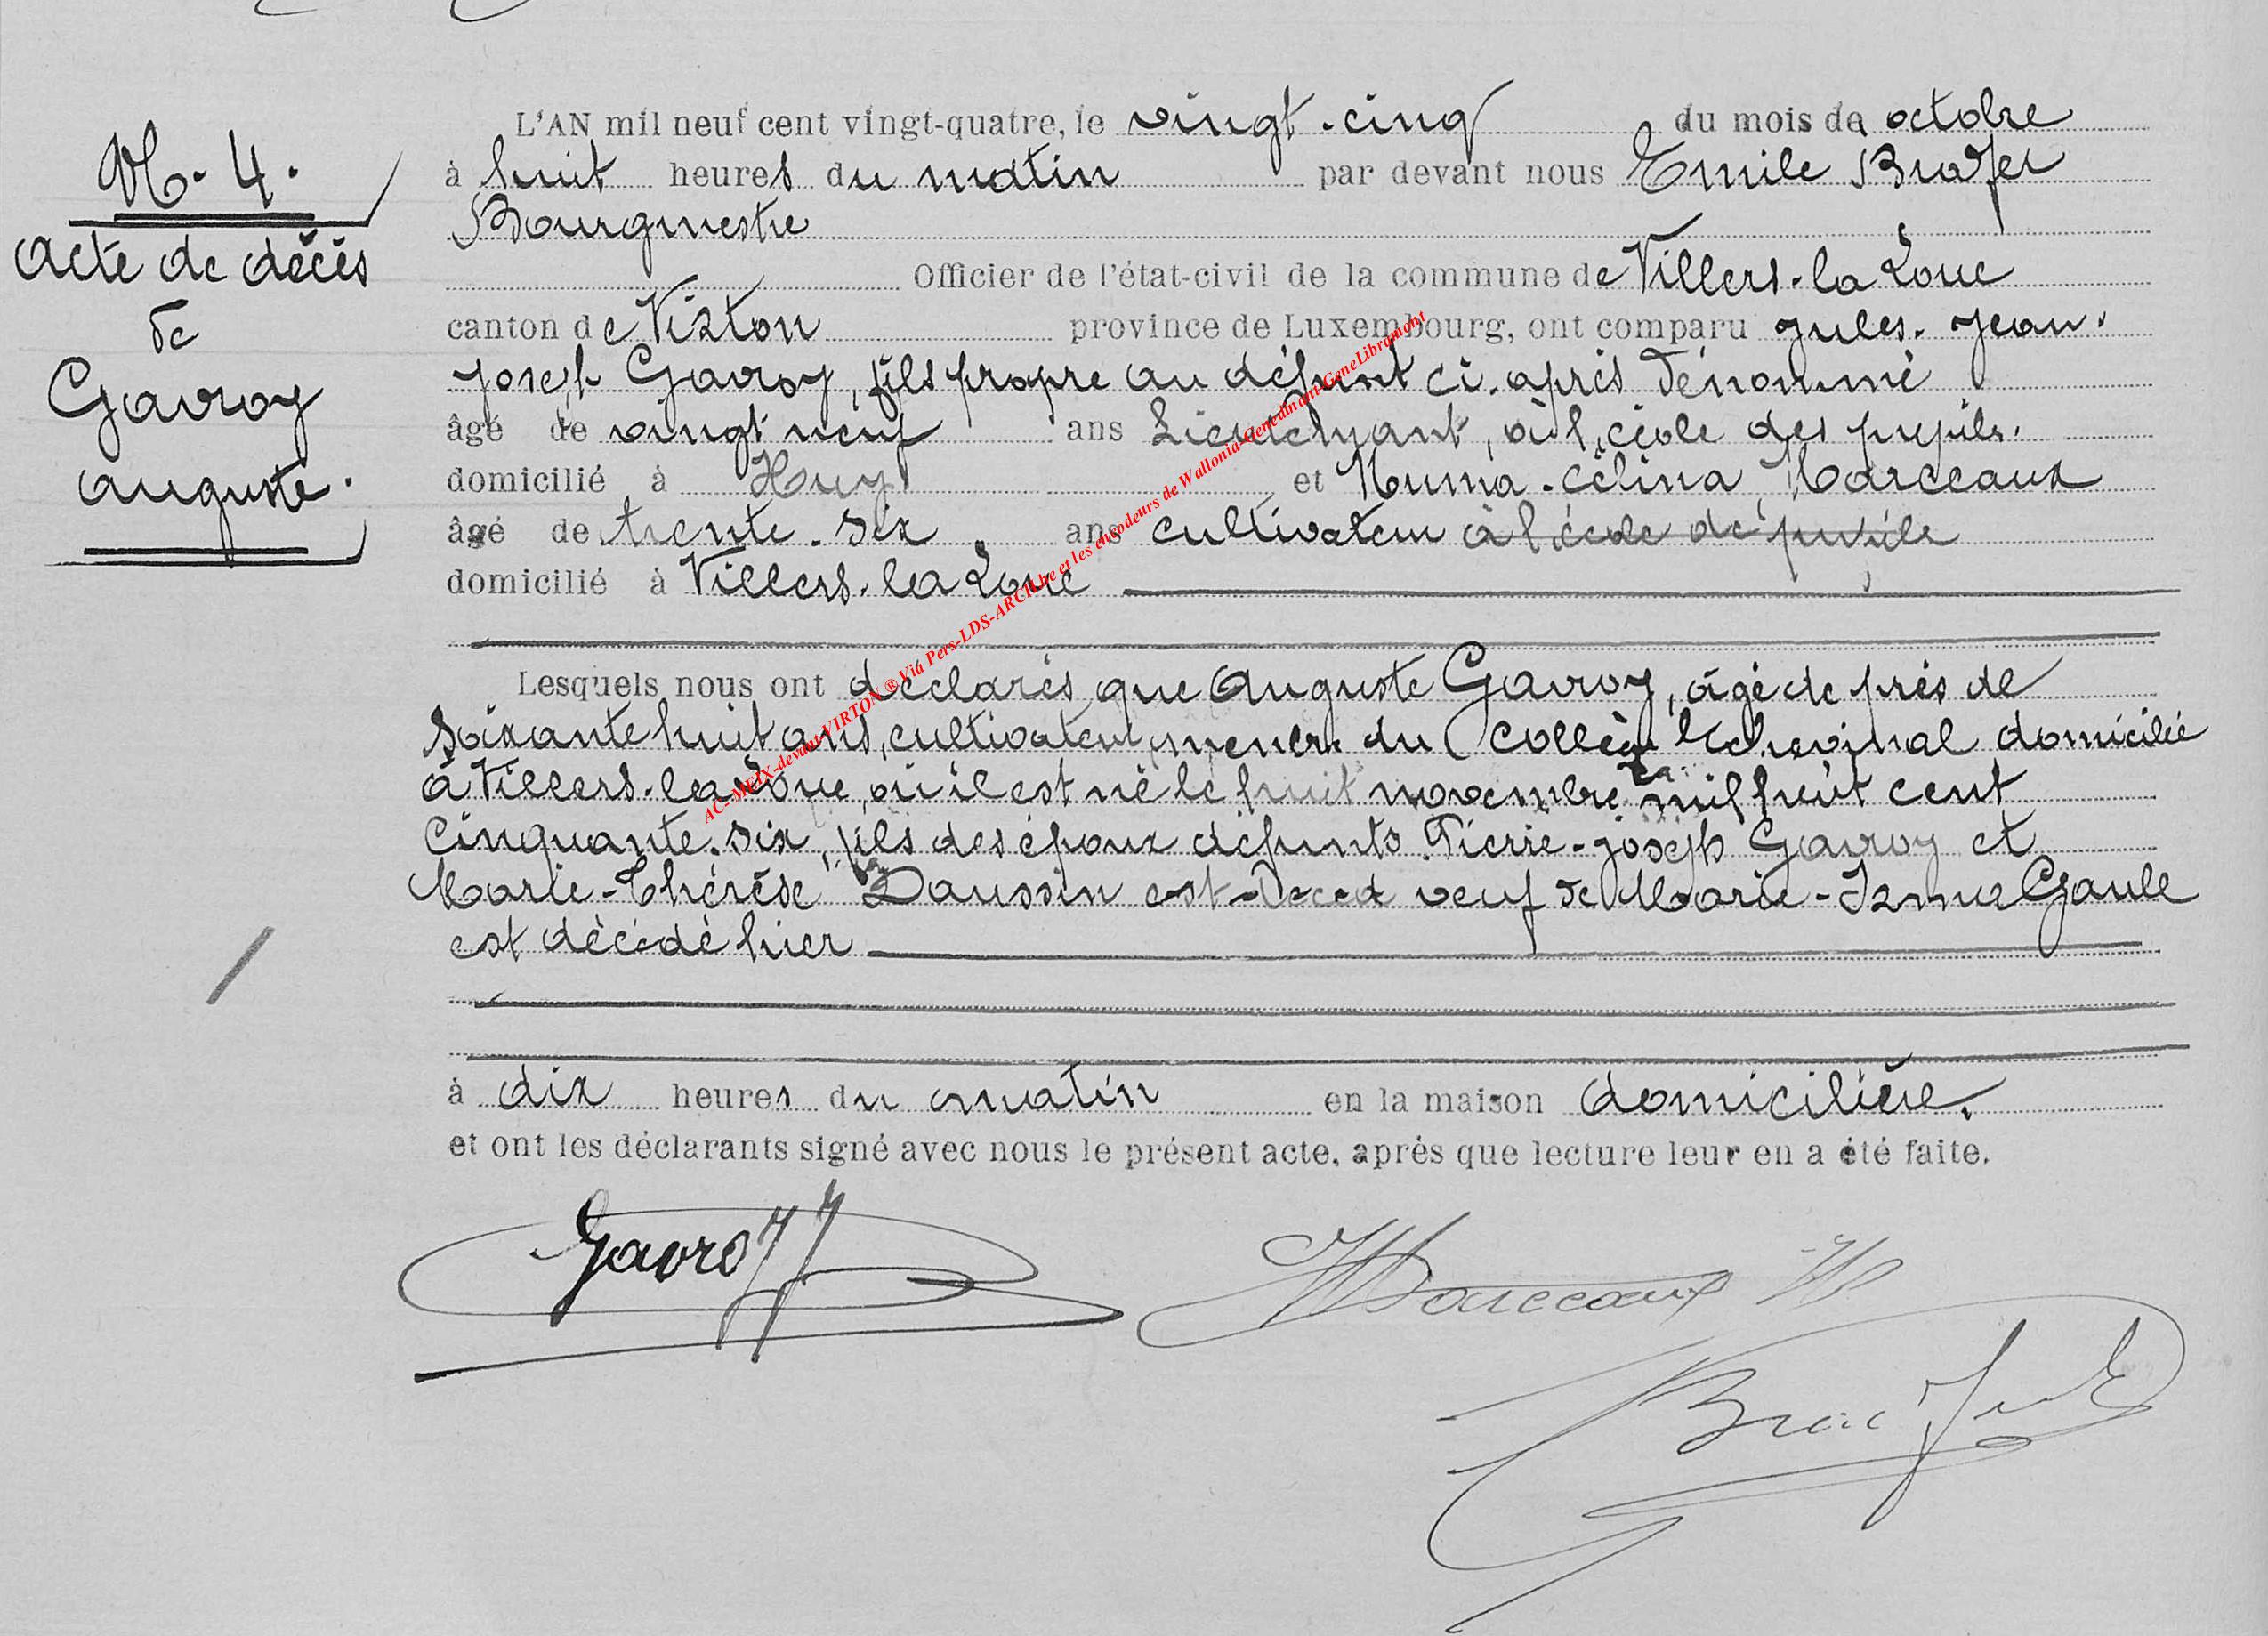 N. 4.
Acte de décès
de
Gavroy
Auguste.
L'AN mil neuf cent vingt-quatre, le vingt-cinq du mois de octobre
à huit heures du matin par devant nous Emile
Bourgmestre
Officier de l'état-civil de la commune de Villers-la Loue
canton de Virton province de Luxembourg, ont comparu Jules-Jean-
Joseph Gavroy, fils propre au défunt ci-après dénommé
âgé de vingt neuf ans Lieutenant, à l'école des pupils.
domicilié à Huy et Numa-Célina Marceaux
âgé de trente-six ans cultivateur à l'école de pupile
domicilié à Villers-la Loue
Lesquels nous ont déclarés que Auguste Gavroy, âgé de près de
soixante huit ans, cultivateur, du Collège Echevinal domicilié
à Villers-la Loue, où il est né le huit novembre mil huit cent
cinquante-six, fils des époux défunts Pierre-Joseph Gavroy et
Marie-Thérèse Daussin est veuf de Marie- Gaule
est décédé hier
à dix heures du matin en la maison domicilière.
et ont les déclarants signé avec nous le présent acte, après que lecture leur en a été faite.
Gavroy J
Marceaux N
AC-MEIX-devant-VIRTON ® Viá Pers-LDS-ARCH.be et les encodeurs de Wallonia-Genedinant-GeneLibramont